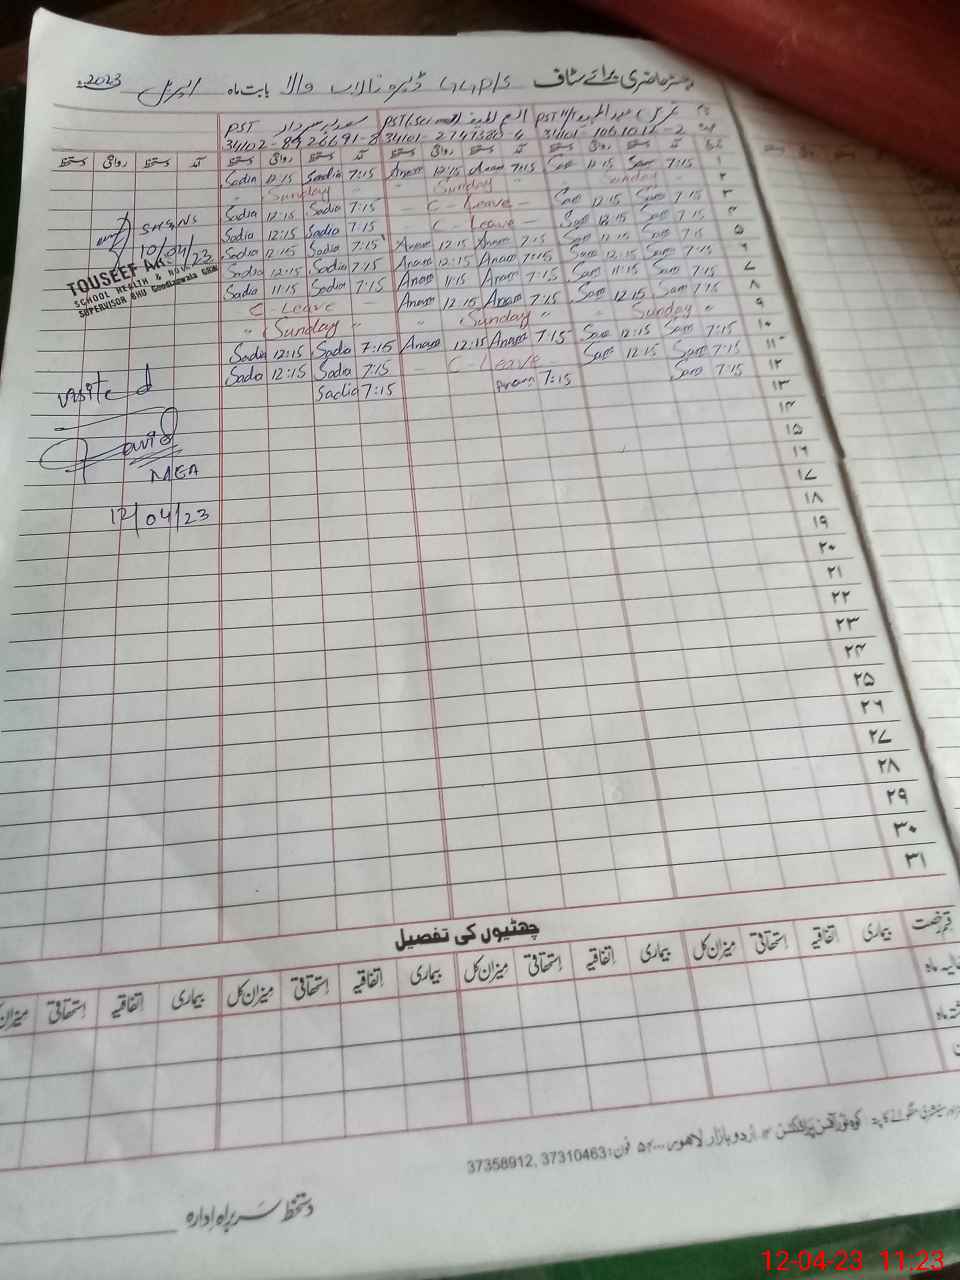 رجسٹر حاضری برائے سٹاف GGPS ڈیرہ تالاب والا بابت ماہ اپریل 2023ء
PST PST PST
34102-8926691-8 34101-2741580-4
آمد دستخط روانگی دستخط آمد دستخط روانگی دستخط آمد دستخط روانگی دستخط آمد دستخط روانگی دستخط
Sadia 12:15 Sadia 7:15 Anam 12:15 Anam 7:15 Sam 12:15 Sam 7:15 ۱
" Sunday " " Sunday " Sunday ۲
Sadia 12:15 Sadia 7:15 - C - Leave - Sam 12:15 Sam 7:15 ۳
Sadia 12:15 Sadia 7:15 - C - Leave - Sam 12:15 Sam 7:15 ۴
Sadia 12:15 Sadia 7:15 Anam 12:15 Anam 7:15 Sam 12:15 Sam 7:15 ۵
Sadia 12:15 Sadia 7:15 Anam 12:15 Anam 7:15 Sam 12:15 Sam 7:15 ۶
Sadia 11:15 Sadia 7:15 Anam 11:15 Anam 7:15 Sam 11:15 Sam 7:15 ۷
C - Leave - Anam 12:15 Anam 7:15 Sam 12:15 Sam 7:15 ۸
" Sunday " " Sunday " " Sunday " ۹
Sadia 12:15 Sadia 7:15 Anam 12:15 Anam 7:15 Sam 12:15 Sam 7:15 ۱۰
Sadia 12:15 Sadia 7:15 - C - Leave - Sam 12:15 Sam 7:15 ۱۱
Sadia 7:15 Anam 7:15 Sam 7:15 ۱۲
SHSNS
10/04/23
TOUSEEF
SCHOOL HEALTH &
SUPERVISOR BHU
visited
Javid
MEA
12/04/23
۱۳
۱۴
۱۵
۱۶
۱۷
۱۸
۱۹
۲۰
۲۱
۲۲
۲۳
۲۴
۲۵
۲۶
۲۷
۲۸
۲۹
۳۰
۳۱
چھٹیوں کی تفصیل
قسم رخصت بیماری اتفاقیہ استحقاقی میزان کل بیماری اتفاقیہ استحقاقی میزان کل بیماری اتفاقیہ استحقاقی میزان کل بیماری اتفاقیہ استحقاقی میزان کل
ماہ
ماہ
اردو بازار لاہور فون: 37310463, 37358912
دستخط سربراہ ادارہ
12-04-23 11:23